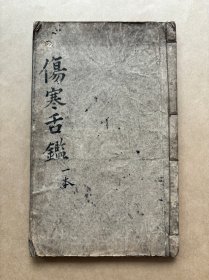 傷寒舌鑑
一本